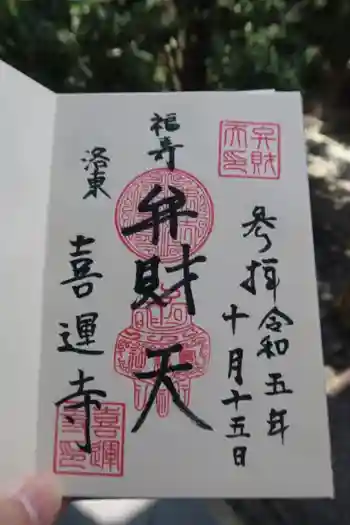 参拝 令和五年
十月十五日
福寿
弁財天
洛東
喜運寺
弁財
天印
喜運
寺印